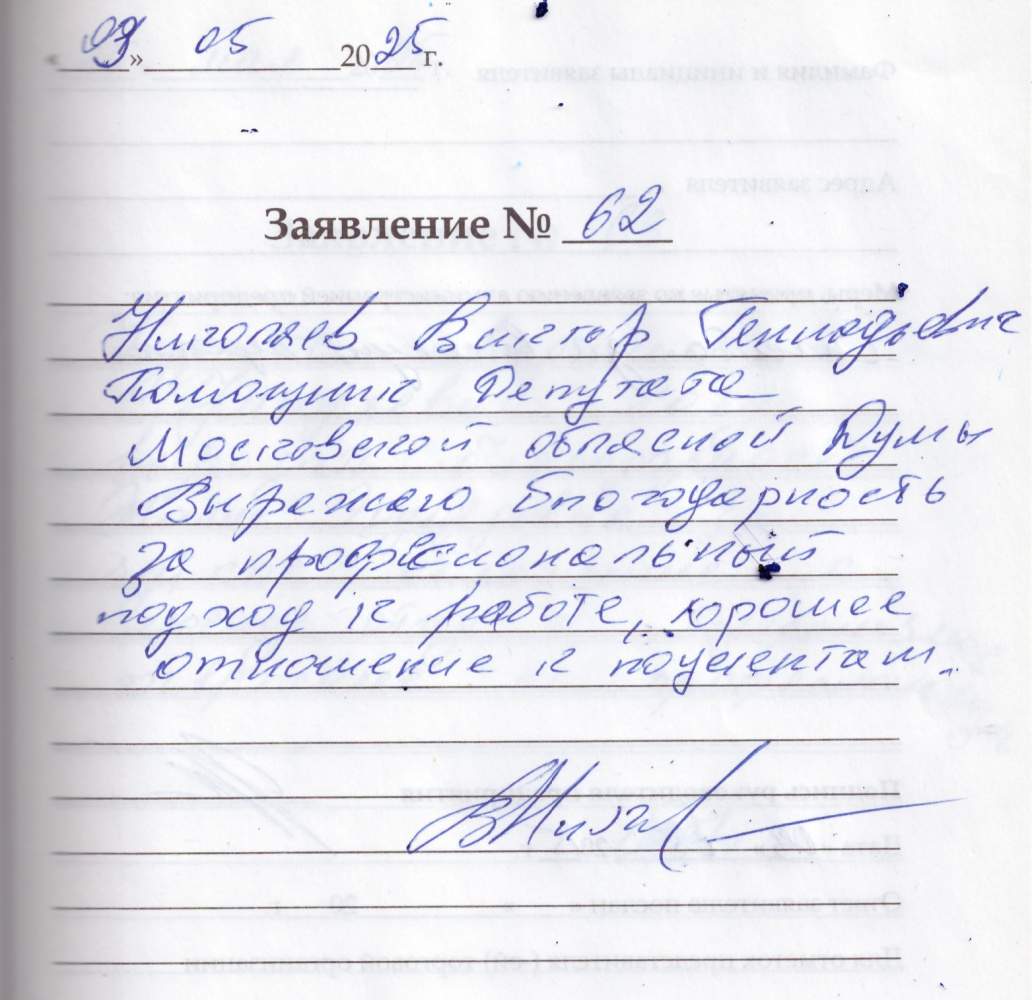 « 09 » 05 2025 г.
Заявление № 62
Николаев Виктор Геннадьевич
Помощник Депутата
Московской обласной Думы
Выражаю благодарность
за профессиональный
подход к работе, хорошее
отношение к поциентам.